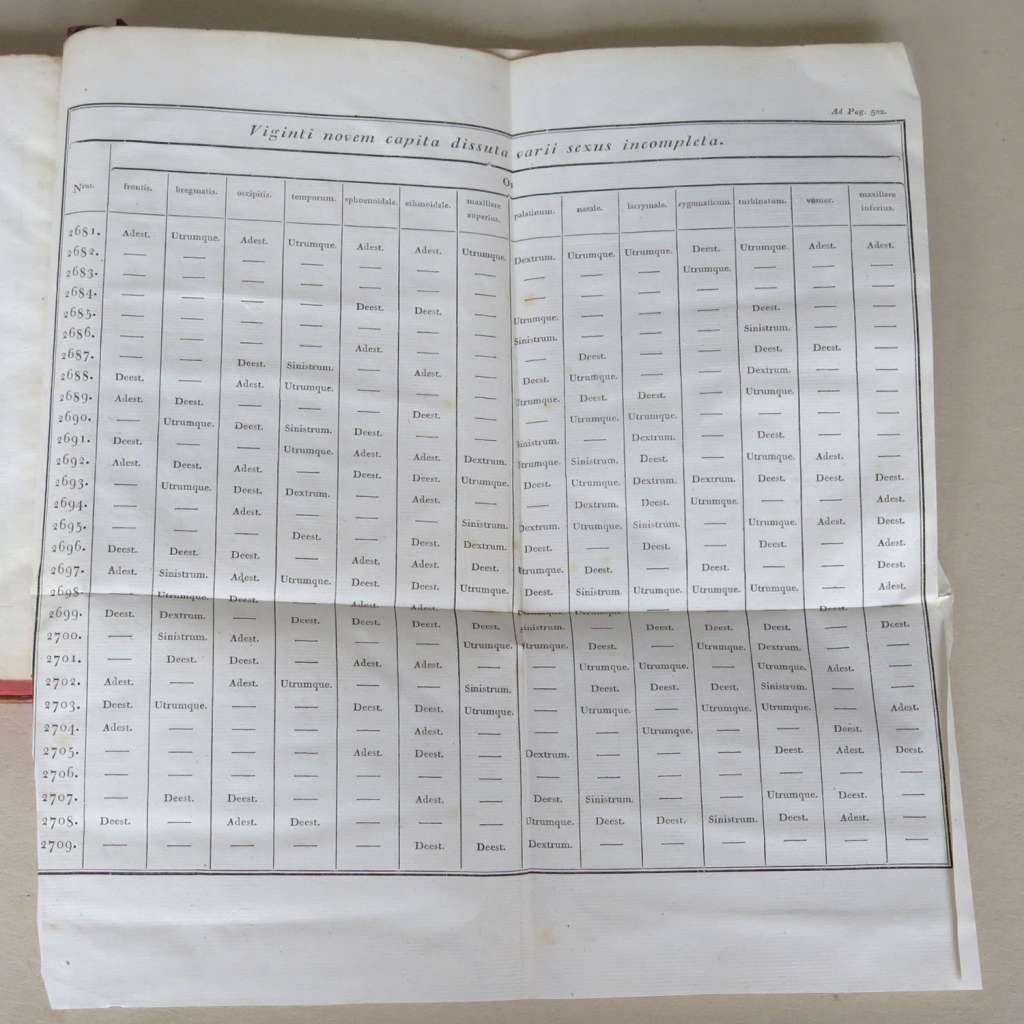 Ad Pag. 502.
Viginti novem capita dissuta varii sexus incompleta.
Nrus. frontis. bregmatis. occipitis. temporum. sphoenoidale. ethmoidale. maxillare superius. palatinum. nasale. lacrymale. zygomaticum. turbinatum. vomer. maxillare inferius.
2681. Adest. Utrumque. Adest. Utrumque. Adest. Adest. Utrumque. Dextrum. Utrumque. Utrumque. Deest. Utrumque. Adest. Adest.
2682. — — — — — — — — — — Utrumque. — — —
2683. — — — — — — — — — — — — — —
2684. — — — — Deest. Deest. — Utrumque. — — — Deest. — —
2685. — — — — — — — Sinistrum. — — — Sinistrum. — —
2686. — — — — Adest. — — — Deest. — — Deest. Deest. —
2687. — — Deest. Sinistrum. — Adest. — Deest. Utrumque. — — Dextrum. — —
2688. Deest. — Adest. Utrumque. — — — Utrumque. Deest. Deest. — Utrumque. — —
2689. Adest. Deest. — — — Deest. — — Utrumque. Utrumque. — — — —
2690. — Utrumque. Deest. Sinistrum. Deest. — — Sinistrum. — Dextrum. — Deest. — —
2691. Deest. — — Utrumque. Adest. Adest. Dextrum. Utrumque. Sinistrum. Deest. — Utrumque. Adest. —
2692. Adest. Deest. Adest. — Deest. Deest. Utrumque. Deest. Utrumque. Dextrum. Dextrum. Deest. Deest. Deest.
2693. — Utrumque. Deest. Dextrum. — Adest. — — Dextrum. Deest. Utrumque. — — Adest.
2694. — — Adest. — — — Sinistrum. Dextrum. Utrumque. Sinistrum. — Utrumque. Adest. Deest.
2695. — — — Deest. — Deest. Dextrum. Deest. — Deest. — Deest. — Adest.
2696. Deest. Deest. Deest. — Adest. Adest. Deest. Utrumque. Deest. — Deest. — — Deest.
2697. Adest. Sinistrum. Adest. Utrumque. Deest. Deest. Utrumque. Deest. Sinistrum. Utrumque. Utrumque. Utrumque. — Adest.
2698. — Utrumque. Deest. — Adest. Adest. — Utrumque. Utrumque. — — — Deest. —
2699. Deest. Dextrum. — Deest. Deest. Deest. Deest. Sinistrum. — Deest. Deest. Deest. — Deest.
2700. — Sinistrum. Adest. — — — Utrumque. Utrumque. Deest. — Utrumque. Dextrum. — —
2701. — Deest. Deest. — Adest. Adest. — — Utrumque. Utrumque. — Utrumque. Adest. —
2702. Adest. — Adest. Utrumque. — — Sinistrum. — Deest. Deest. Deest. Sinistrum. — —
2703. Deest. Utrumque. — — Deest. Deest. Utrumque. — Utrumque. — Utrumque. Utrumque. — Adest.
2704. Adest. — — — — Adest. — — — Utrumque. — — Deest. —
2705. — — — — Adest. Deest. — Dextrum. — — — Deest. Adest. Deest.
2706. — — — — — — — — — — — — — —
2707. — Deest. Deest. — — Adest. — Deest. Sinistrum. — — Utrumque. Deest. —
2708. Deest. — Adest. Deest. — — — Utrumque. Deest. Deest. Sinistrum. Deest. Adest. —
2709. — — — — — Deest. Deest. Dextrum. — — — — — —